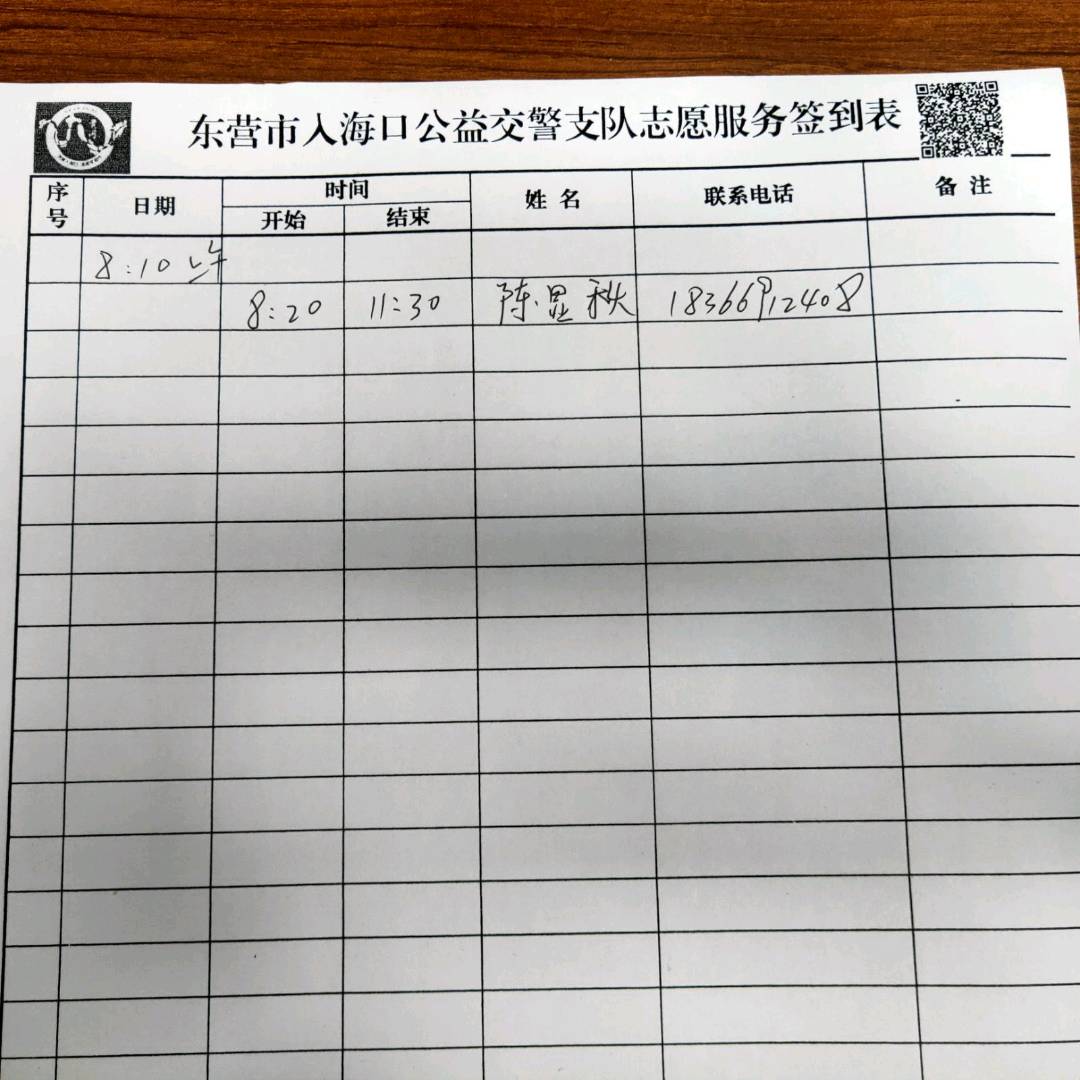 东营市入海口公益交警支队志愿服务签到表
序号 日期 时间 姓名 联系电话 备注
开始 结束
8:10
8:20 11:30 陈显秋 18366912408